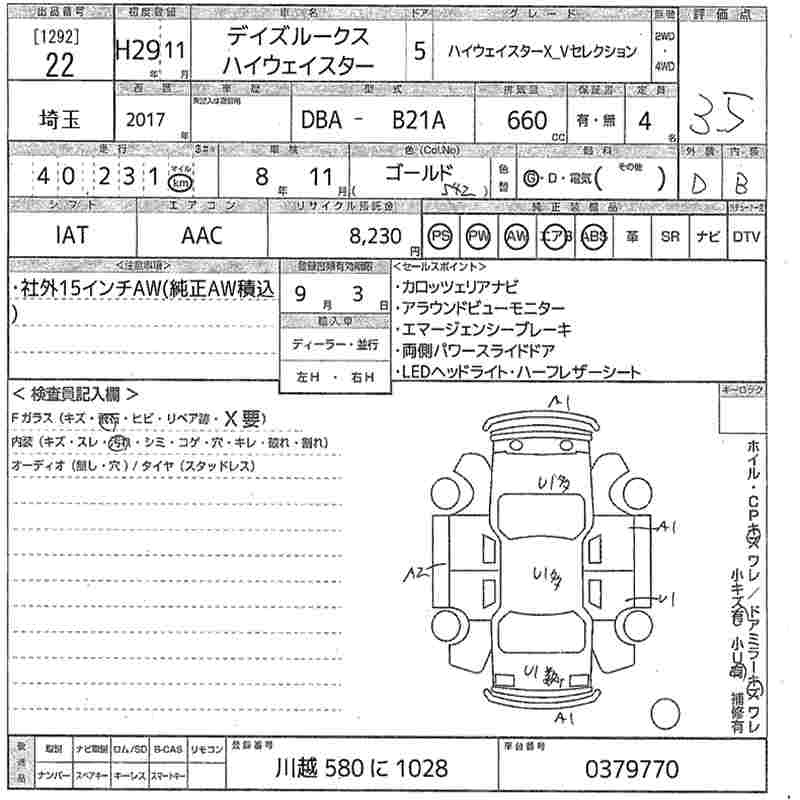 出品番号 初度登録 車名 ドア グレード 駆動 評価点
[1292]
22
H29 11
年 月
デイズルークス
ハイウェイスター
5
ハイウェイスターX_Vセレクション
2WD
・
4WD
3.5
西暦 車歴 型式 排気量 保証書 定員
埼玉
2017 年
DBA - B21A
660 cc
有・無
4 名
走行 車検 色(Col.No) 燃料 外装 内装
40,231 マイル km
8 年 11 月
ゴールド
( 542 )
色替
G・D・電気( その他 )
D
B
シフト エアコン リサイクル預託金 純正装備品
IAT
AAC
8,230 円
PS PW AW エアB ABS 革 SR ナビ DTV
<注意事項>
・社外15インチAW(純正AW積込
)
登録書類有効期限
9 月 3 日
輸入車
ディーラー・並行
左H ・ 右H
<セールスポイント>
・カロッツェリアナビ
・アラウンドビューモニター
・エマージェンシーブレーキ
・両側パワースライドドア
・LEDヘッドライト・ハーフレザーシート
キーロック
<検査員記入欄>
Fガラス(キズ・飛石・ヒビ・リペア跡・X要)
内装(キズ・スレ・汚れ・シミ・コゲ・穴・キレ・破れ・割れ)
オーディオ(無し・穴)/タイヤ(スタッドレス)
A1
U1多
A1
A2
U1多
U1
U1
A1
ホイル・CPキズワレ/ドアミラーキズワレ
小キズ有 小U有 補修有
後送品
取説 ナビ取説 ロム/SD B-CAS リモコン
ナンバー スペアキー キーレス スマートキー
登録番号
川越 580 に 1028
車台番号
0379770